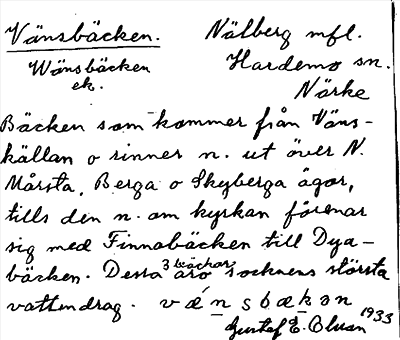 Vänsbäcken. Nälberg mfl.
Wänsbäcken Hardemo sn.
ek. Närke
Bäcken som kommer från Väns-
källan o rinner n. ut över N.
Mårsta, Berga o Skyberga ägor,
tills den n. om kyrkan förenar
sig med Finnabäcken till Dya-
bäcken. Dessa 3 bäckar äro socknens största
vattendrag. væ´nsbækən
Gustaf E. Olsson 1933